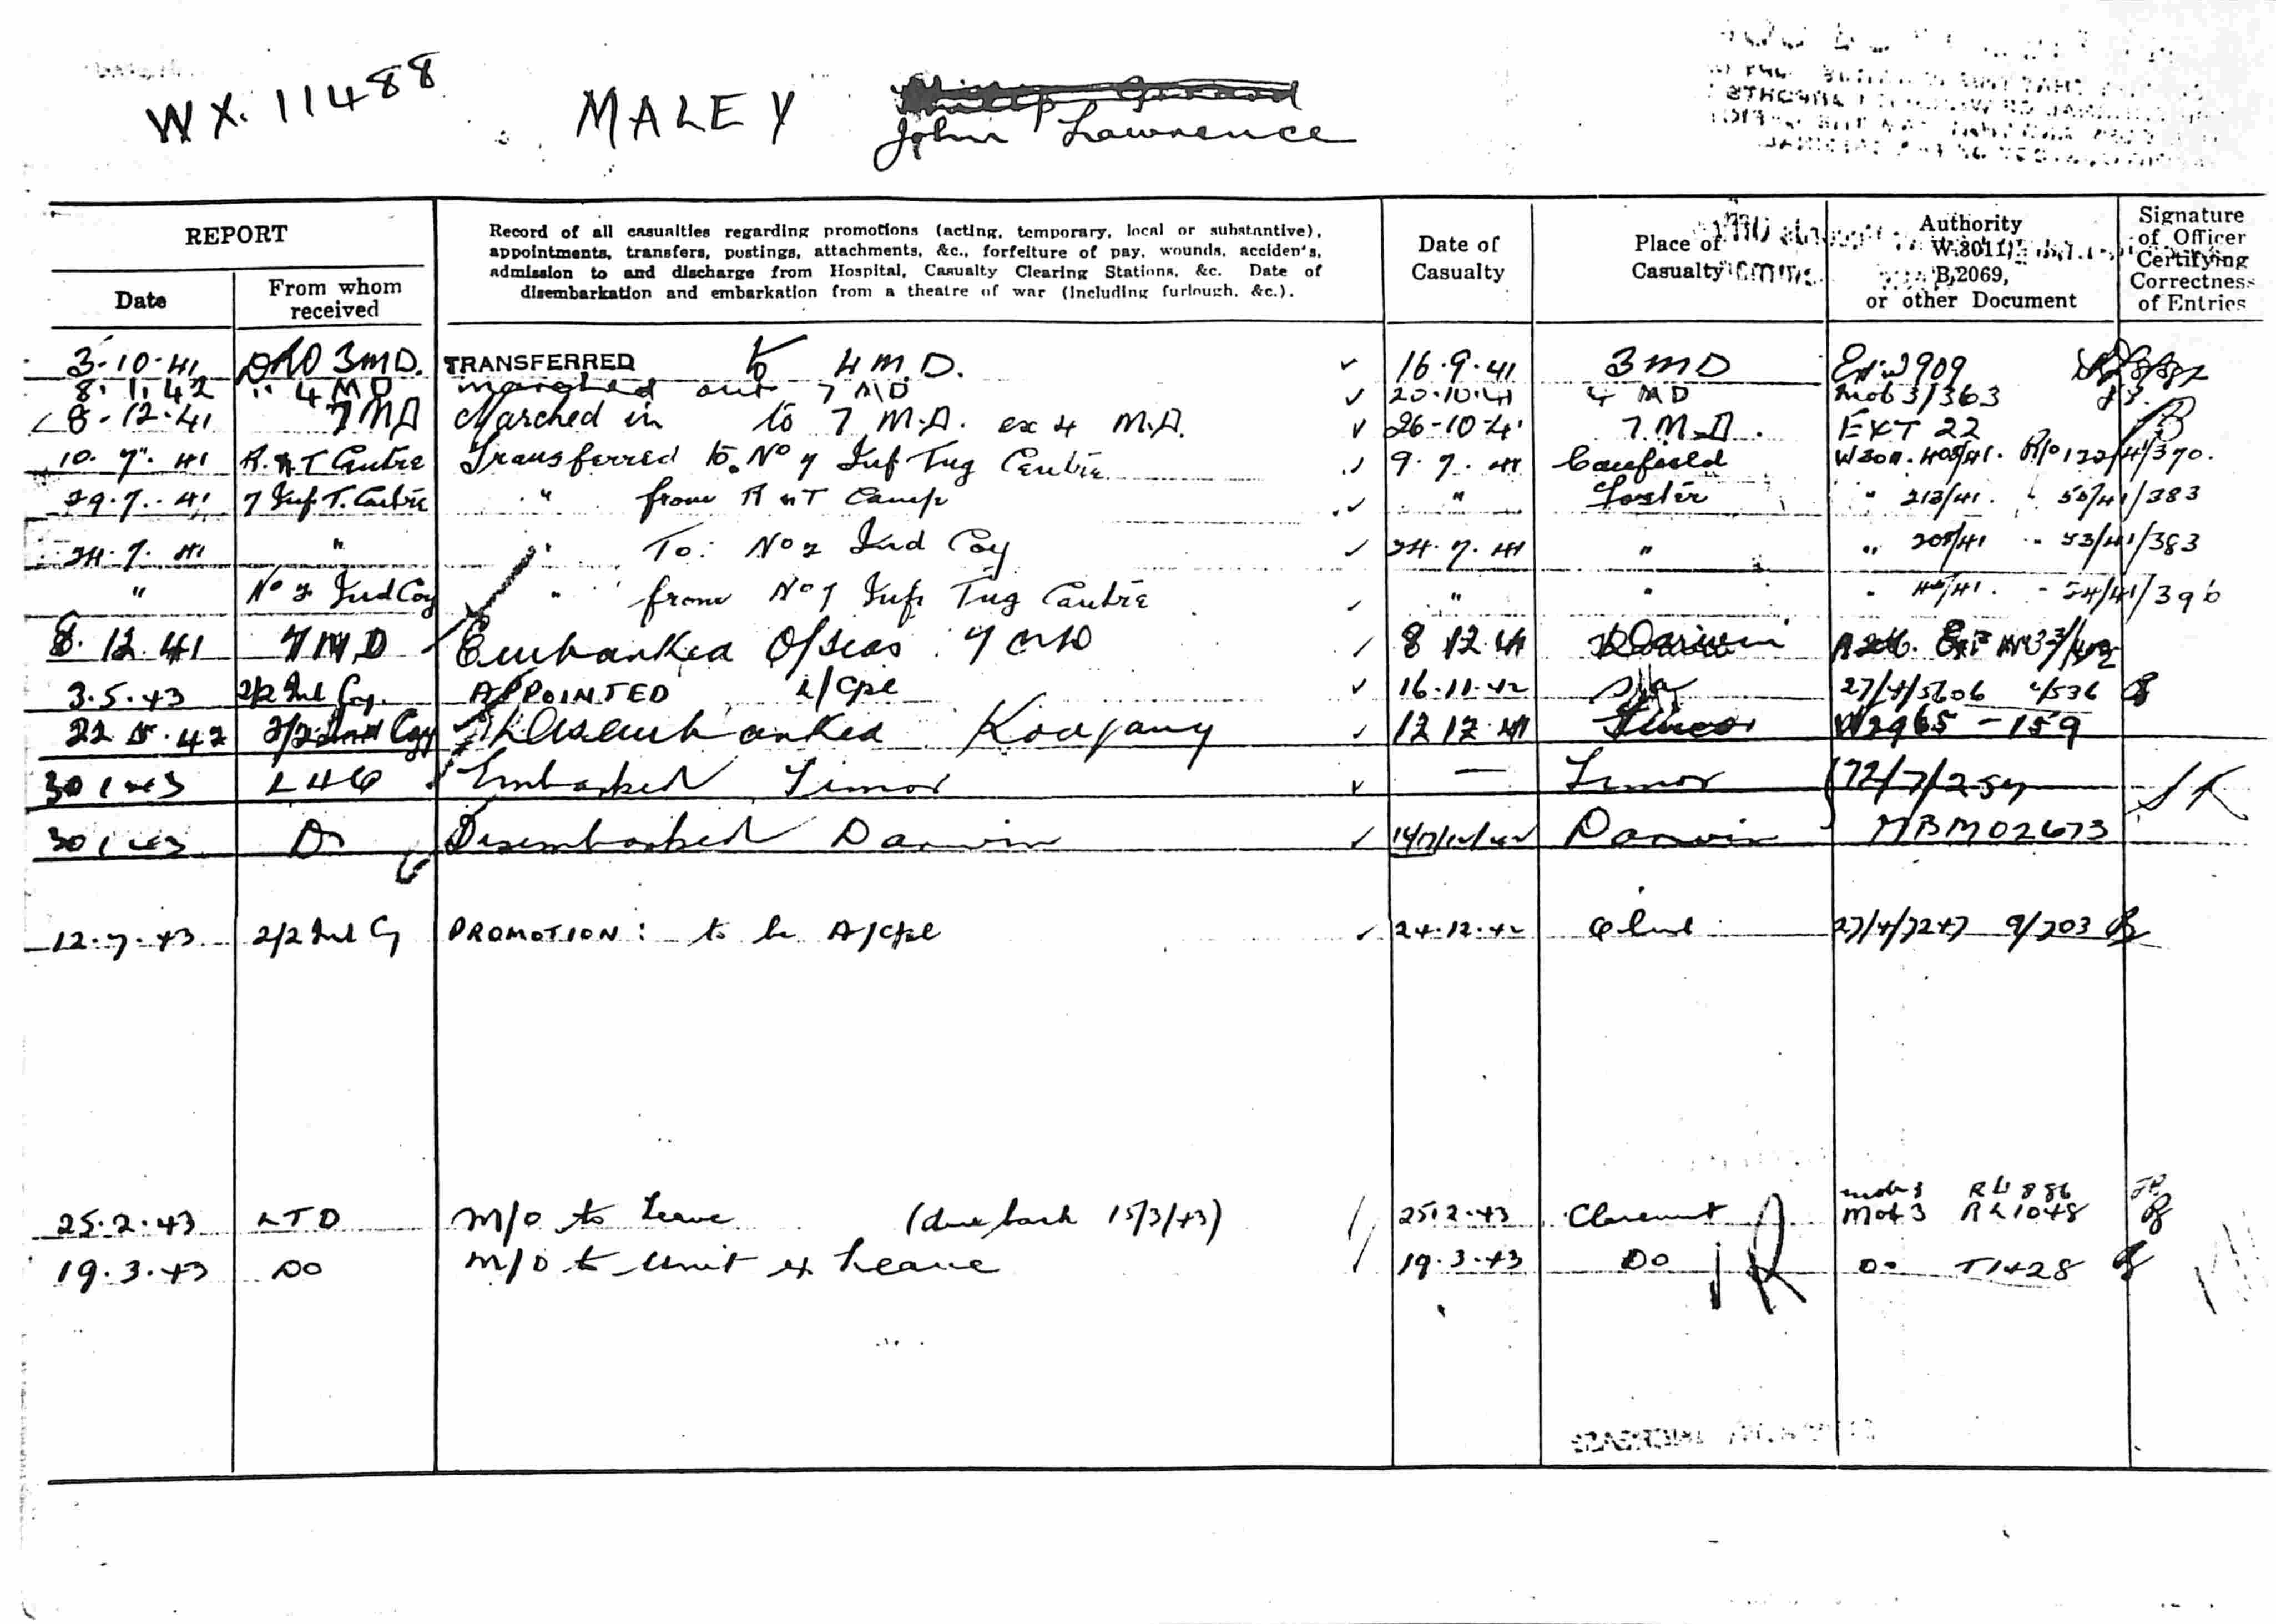 WX. 11488 MALEY John Lawrence
REPORT
Date
From whom received
Record of all casualties regarding promotions (acting, temporary, local or substantive),
appointments, transfers, postings, attachments, &c., forfeiture of pay, wounds, accidents,
admission to and discharge from Hospital, Casualty Clearing Stations, &c. Date of
disembarkation and embarkation from a theatre of war (including furlough, &c.).
Date of Casualty
Place of Casualty
Authority W.3011, B.2069, or other Document
Signature of Officer Certifying Correctness of Entries
3.10.41 DRO 3MD. TRANSFERRED to 4 M.D. 16.9.41 3MD 909
8.1.42 " 4 MD marched out 7 MD 20.10.41 4 MD Mob 3/363
8.12.41 7MD Marched in to 7 M.D. ex 4 M.D. 26-10-41 7.M.D. EXT 22
10.7.41 R.&T Centre Transferred to No 7 Inf Tng Centre 9.7.41 Caulfield
29.7.41 7 Inf T. Centre " from R & T Camp " Foster " 213/41. 383
24.7.41 " " To: No 2 Ind Coy 24.7.41 " " 205/41 " 53/41/383
" No 2 Ind Coy " from No 7 Inf Tng Centre " " " - 54/41/396
8.12.41 7MD Embarked O/seas 8 12 41 Darwin
3.5.43 2/2 Ind Coy. APPOINTED L/Cpl 16.11.42 27/4/5606 536
22 5.42 2/2 Ind Coy Disembarked Koepang 12 12 41 Timor W2965 - 159
30 1 43 L HQ Embarked Timor — Timor 72/7/257
30 1 43 Do Disembarked Darwin Darwin MBM02673
12.7.43 2/2 Ind Cy PROMOTION: to be A/Cpl 24.12.42 27/4/7247 9/703
25.2.43 LTD M/O to Leave (due back 15/3/43) 25.2.43 Claremont Mob 3 RL1048
19.3.43 DO M/O to Unit ex Leave 19.3.43 DO Do T1428